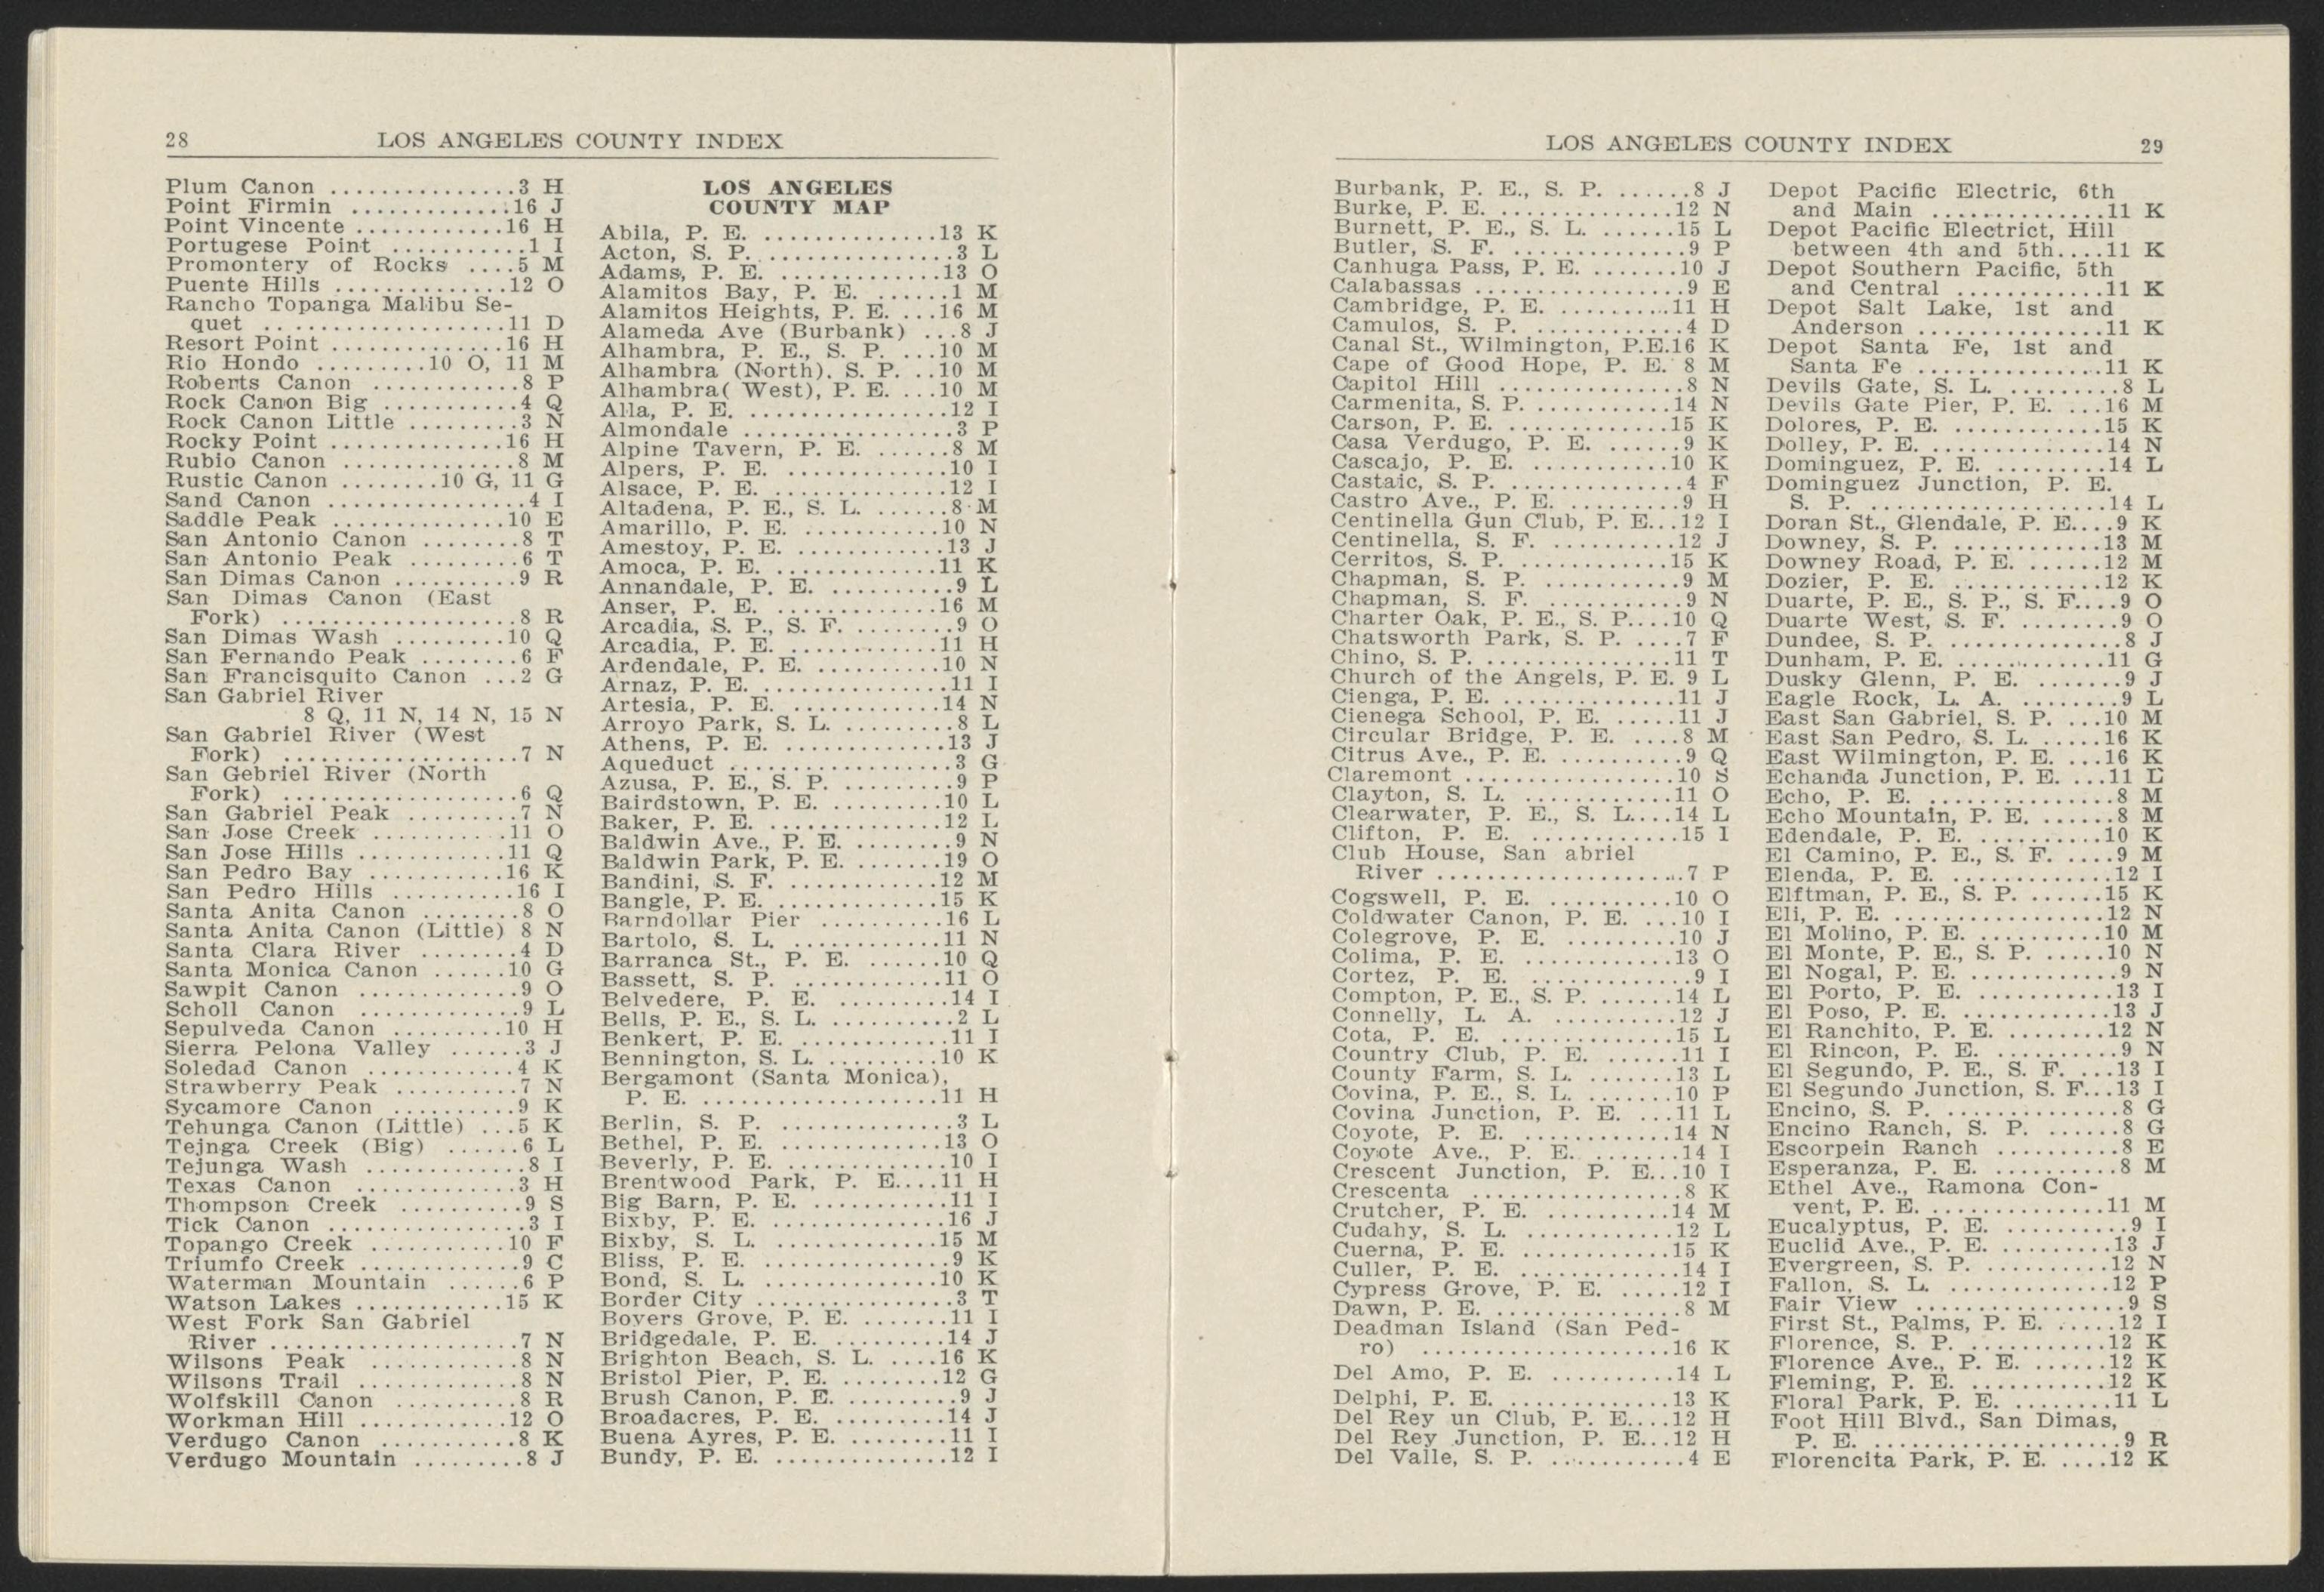 28 LOS ANGELES COUNTY INDEX
Plum Canon ...............3 H
Point Firmin .............16 J
Point Vincente ............16 H
Portugese Point ...........1 I
Promontery of Rocks ....5 M
Puente Hills ..............12 O
Rancho Topanga Malibu Se-
quet .. ..................11 D
Resort Point ..............16 H
Rio Hondo .........10 O, 11 M
Roberts Canon ............8 P
Rock Canon Big ...........4 Q
Rock Canon Little .........3 N
Rocky Point ..............16 H
Rubio Canon ..............8 M
Rustic Canon ........10 G, 11 G
Sand Canon ................4 I
Saddle Peak ..............10 E
San Antonio Canon ........8 T
San Antonio Peak .........6 T
San Dimas Canon ..........9 R
San Dimas Canon (East
Fork) ....................8 R
San Dimas Wash .........10 Q
San Fernando Peak ........6 F
San Francisquito Canon ...2 G
San Gabriel River
8 Q, 11 N, 14 N, 15 N
San Gabriel River (West
Fork) ....................7 N
San Gebriel River (North
Fork) ....................6 Q
San Gabriel Peak .........7 N
San Jose Creek ...........11 O
San Jose Hills ............11 Q
San Pedro Bay ...........16 K
San Pedro Hills ..........16 I
Santa Anita Canon ........8 O
Santa Anita Canon (Little) 8 N
Santa Clara River ........4 D
Santa Monica Canon ......10 G
Sawpit Canon .............9 O
Scholl Canon .............9 L
Sepulveda Canon .........10 H
Sierra Pelona Valley ......3 J
Soledad Canon ............4 K
Strawberry Peak ..........7 N
Sycamore Canon ..........9 K
Tehunga Canon (Little) ...5 K
Tejnga Creek (Big) ......6 L
Tejunga Wash .............8 I
Texas Canon .............3 H
Thompson Creek ..........9 S
Tick Canon ................3 I
Topango Creek ...........10 F
Triumfo Creek .............9 C
Waterman Mountain ......6 P
Watson Lakes ............15 K
West Fork San Gabriel
River .....................7 N
Wilsons Peak ............8 N
Wilsons Trail .............8 N
Wolfskill Canon ..........8 R
Workman Hill ............12 O
Verdugo Canon ...........8 K
Verdugo Mountain .........8 J
LOS ANGELES
COUNTY MAP
Abila, P. E. ..............13 K
Acton, S. P. ................3 L
Adams, P. E. .............13 O
Alamitos Bay, P. E. ......1 M
Alamitos Heights, P. E. ...16 M
Alameda Ave (Burbank) ...8 J
Alhambra, P. E., S. P. ...10 M
Alhambra (North). S. P. ..10 M
Alhambra( West), P. E. ...10 M
Alla, P. E. ................12 I
Almondale .................3 P
Alpine Tavern, P. E. ......8 M
Alpers, P. E. .............10 I
Alsace, P. E. ..............12 I
Altadena, P. E., S. L. ......8 M
Amarillo, P. E. ...........10 N
Amestoy, P. E. ............13 J
Amoca, P. E. .............11 K
Annandale, P. E. ..........9 L
Anser, P. E. .............16 M
Arcadia, S. P., S. F. ........9 O
Arcadia, P. E. ............11 H
Ardendale, P. E. ..........10 N
Arnaz, P. E. ...............11 I
Artesia, P. E. ............14 N
Arroyo Park, S. L. .........8 L
Athens, P. E. .............13 J
Aqueduct ..................3 G
Azusa, P. E., S. P. .........9 P
Bairdstown, P. E. .........10 L
Baker, P. E. ..............12 L
Baldwin Ave., P. E. ........9 N
Baldwin Park, P. E. .......19 O
Bandini, S. F. ............12 M
Bangle, P. E. .............15 K
Barndollar Pier ..........16 L
Bartolo, S. L. ............11 N
Barranca St., P. E. ......10 Q
Bassett, S. P. ............11 O
Belvedere, P. E. .........14 I
Bells, P. E., S. L. ..........2 L
Benkert, P. E. ............11 I
Bennington, S. L. .........10 K
Bergamont (Santa Monica),
P. E. ....................11 H
Berlin, S. P. ..............3 L
Bethel, P. E. .............13 O
Beverly, P. E. .............10 I
Brentwood Park, P. E....11 H
Big Barn, P. E. ...........11 I
Bixby, P. E. ..............16 J
Bixby, S. L. .............15 M
Bliss, P. E. ...............9 K
Bond, S. L. ..............10 K
Border City ................3 T
Boyers Grove, P. E. .......11 I
Bridgedale, P. E. .........14 J
Brighton Beach, S. L. ....16 K
Bristol Pier, P. E. ........12 G
Brush Canon, P. E. .........9 J
Broadacres, P. E. .........14 J
Buena Ayres, P. E. ........11 I
Bundy, P. E. ..............12 I
LOS ANGELES COUNTY INDEX 29
Burbank, P. E., S. P. ......8 J
Burke, P. E. ..............12 N
Burnett, P. E., S. L. ......15 L
Butler, S. F. ...............9 P
Canhuga Pass, P. E. .......10 J
Calabassas .................9 E
Cambridge, P. E. ..........11 H
Camulos, S. P. ............4 D
Canal St., Wilmington, P.E.16 K
Cape of Good Hope, P. E. 8 M
Capitol Hill ...............8 N
Carmenita, S. P. ...........14 N
Carson, P. E. .............15 K
Casa Verdugo, P. E. ......9 K
Cascajo, P. E. ...........10 K
Castaic, S. P. ..............4 F
Castro Ave., P. E. .........9 H
Centinella Gun Club, P. E...12 I
Centinella, S. F. ..........12 J
Cerritos, S. P. ............15 K
Chapman, S. P. ...........9 M
Chapman, S. F. ...........9 N
Charter Oak, P. E., S. P....10 Q
Chatsworth Park, S. P. ....7 F
Chino, S. P. ...............11 T
Church of the Angels, P. E. 9 L
Cienga, P. E. ..............11 J
Cienega School, P. E. .....11 J
Circular Bridge, P. E. ....8 M
Citrus Ave., P. E. ..........9 Q
Claremont .................10 S
Clayton, S. L. ............11 O
Clearwater, P. E., S. L....14 L
Clifton, P. E. ............15 I
Club House, San abriel
River ....................7 P
Cogswell, P. E. ..........10 O
Coldwater Canon, P. E. ...10 I
Colegrove, P. E. .........10 J
Colima, P. E. ............13 O
Cortez, P. E. .............9 I
Compton, P. E., S. P. ......14 L
Connelly, L. A. ..........12 J
Cota, P. E. ..............15 L
Country Club, P. E. ......11 I
County Farm, S. L. .......13 L
Covina, P. E., S. L. .......10 P
Covina Junction, P. E. ...11 L
Coyote, P. E. ............14 N
Coyote Ave., P. E. .......14 I
Crescent Junction, P. E...10 I
Crescenta .................8 K
Crutcher, P. E. ..........14 M
Cudahy, S. L. ............12 L
Cuerna, P. E. ............15 K
Culler, P. E. .............14 I
Cypress Grove, P. E. .....12 I
Dawn, P. E. ...............8 M
Deadman Island (San Ped-
ro) ....................16 K
Del Amo, P. E. ..........14 L
Delphi, P. E. .............13 K
Del Rey un Club, P. E....12 H
Del Rey Junction, P. E...12 H
Del Valle, S. P. ...........4 E
Depot Pacific Electric, 6th
and Main ..............11 K
Depot Pacific Electrict, Hill
between 4th and 5th....11 K
Depot Southern Pacific, 5th
and Central ............11 K
Depot Salt Lake, 1st and
Anderson ...............11 K
Depot Santa Fe, 1st and
Santa Fe ...............11 K
Devils Gate, S. L. .........8 L
Devils Gate Pier, P. E. ...16 M
Dolores, P. E. ............15 K
Dolley, P. E. ..............14 N
Dominguez, P. E. .........14 L
Dominguez Junction, P. E.
S. P. ....................14 L
Doran St., Glendale, P. E....9 K
Downey, S. P. ............13 M
Downey Road, P. E. ......12 M
Dozier, P. E. ............12 K
Duarte, P. E., S. P., S. F....9 O
Duarte West, S. F. ........9 O
Dundee, S. P. ..............8 J
Dunham, P. E. .............11 G
Dusky Glenn, P. E. .......9 J
Eagle Rock, L. A. ........9 L
East San Gabriel, S. P. ...10 M
East San Pedro, S. L. .....16 K
East Wilmington, P. E. ...16 K
Echanda Junction, P. E. ...11 L
Echo, P. E. ...............8 M
Echo Mountain, P. E. ......8 M
Edendale, P. E. ..........10 K
El Camino, P. E., S. F. ....9 M
Elenda, P. E. .............12 I
Elftman, P. E., S. P. ......15 K
Eli, P. E. .................12 N
El Molino, P. E. ..........10 M
El Monte, P. E., S. P. .....10 N
El Nogal, P. E. ............9 N
El Porto, P. E. ...........13 I
El Poso, P. E. ............13 J
El Ranchito, P. E. ........12 N
El Rincon, P. E. ..........9 N
El Segundo, P. E., S. F. ...13 I
El Segundo Junction, S. F...13 I
Encino, S. P. ..............8 G
Encino Ranch, S. P. ......8 G
Escorpein Ranch ..........8 E
Esperanza, P. E. ..........8 M
Ethel Ave., Ramona Con-
vent, P. E. ..............11 M
Eucalyptus, P. E. ..........9 I
Euclid Ave., P. E. .........13 J
Evergreen, S. P. ..........12 N
Fallon, S. L. .............12 P
Fair View .................9 S
First St., Palms, P. E. .....12 I
Florence, S. P. ...........12 K
Florence Ave., P. E. ......12 K
Fleming, P. E. ...........12 K
Floral Park, P. E. ........11 L
Foot Hill Blvd., San Dimas,
P. E. .....................9 R
Florencita Park, P. E. ....12 K